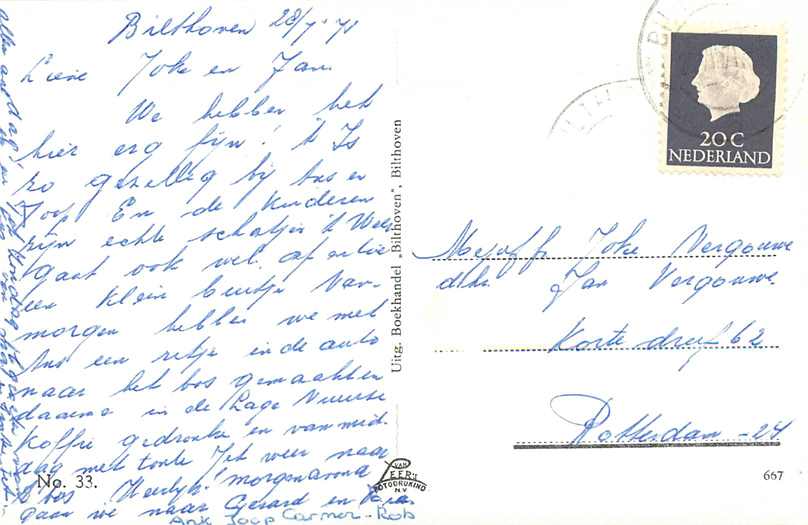 Bilthoven 28/7-71
Lieve Joke en Jan.
We hebben het
hier erg fijn! 't Is
zo gezellig bij bas en
Joop En de kinderen
zijn echte schatjes 't Weer
gaat ook wel. af en toe
een klein buitje Van-
morgen hebben we met
Ans een ritje in de auto
naar het bos gemaakt en
daarna in de Lage Vuurse
Koffie gedronken en van mid-
dag met tante Jet weer naar
't bos Heerlijk! morgenavond
gaan we naar Gerard en
Ank Joop Carmen-Rob
No. 33.
Uitg. Boekhandel „Bilthoven", Bilthoven
VAN LEER'S
FOTODRUKIND
N.V.
20 C
NEDERLAND
Mej off Joke Vergouwe
dhr. Jan Vergouwe.
Korte dreef 62
Rotterdam -24
667